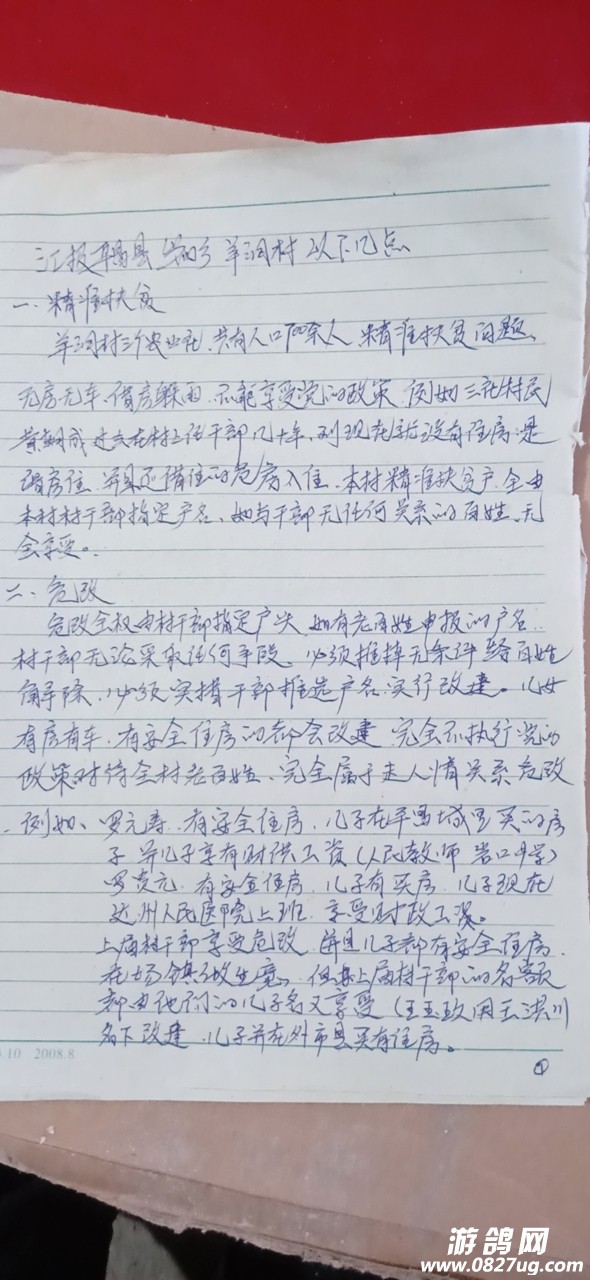 汇报平昌县 乡 羊洞村 以下几点
一、精准扶贫
羊洞村三个农业社、共有人口700余人、精准扶贫问题、
无房无车、借房躲雨、不能享受党的政策、例如三社村民
黄 成过去在村上任干部几十年、到现在就没有住房、是
借房住、并且还借住的危房入住、本村精准扶贫户、全由
本村村干部指定户名、如与干部无任何关系的百姓、无
会享受。
二、危改
危改全权由村干部指定户头、如有老百姓申报的户名、
村干部无论采取任何手段、必须推掉无条件给百姓
解除、必须实 干部推选户名、实行改建。儿女
有房有车、有安全住房的都会改建 完全不执行党的
政策对待全村老百姓、完全属于走人情关系危改
例如、罗元寿、有安全住房、儿子在平昌城里买的房
子 并儿子享有财供工资(人民教师 岩口中学)
罗 元、有安全住房、儿子有买房、儿子现在
达州人民医院上班、享受财政工资。
上届村干部享受危改、并且儿子都有安全住房、
在场镇做生意、但是上届村干部的名 款
都由他们的儿子名又享受(王 用王洪川
名下改建、儿子并在外市县买有住房。
10 2008.8
①
游鸽网
www.0827ug.com